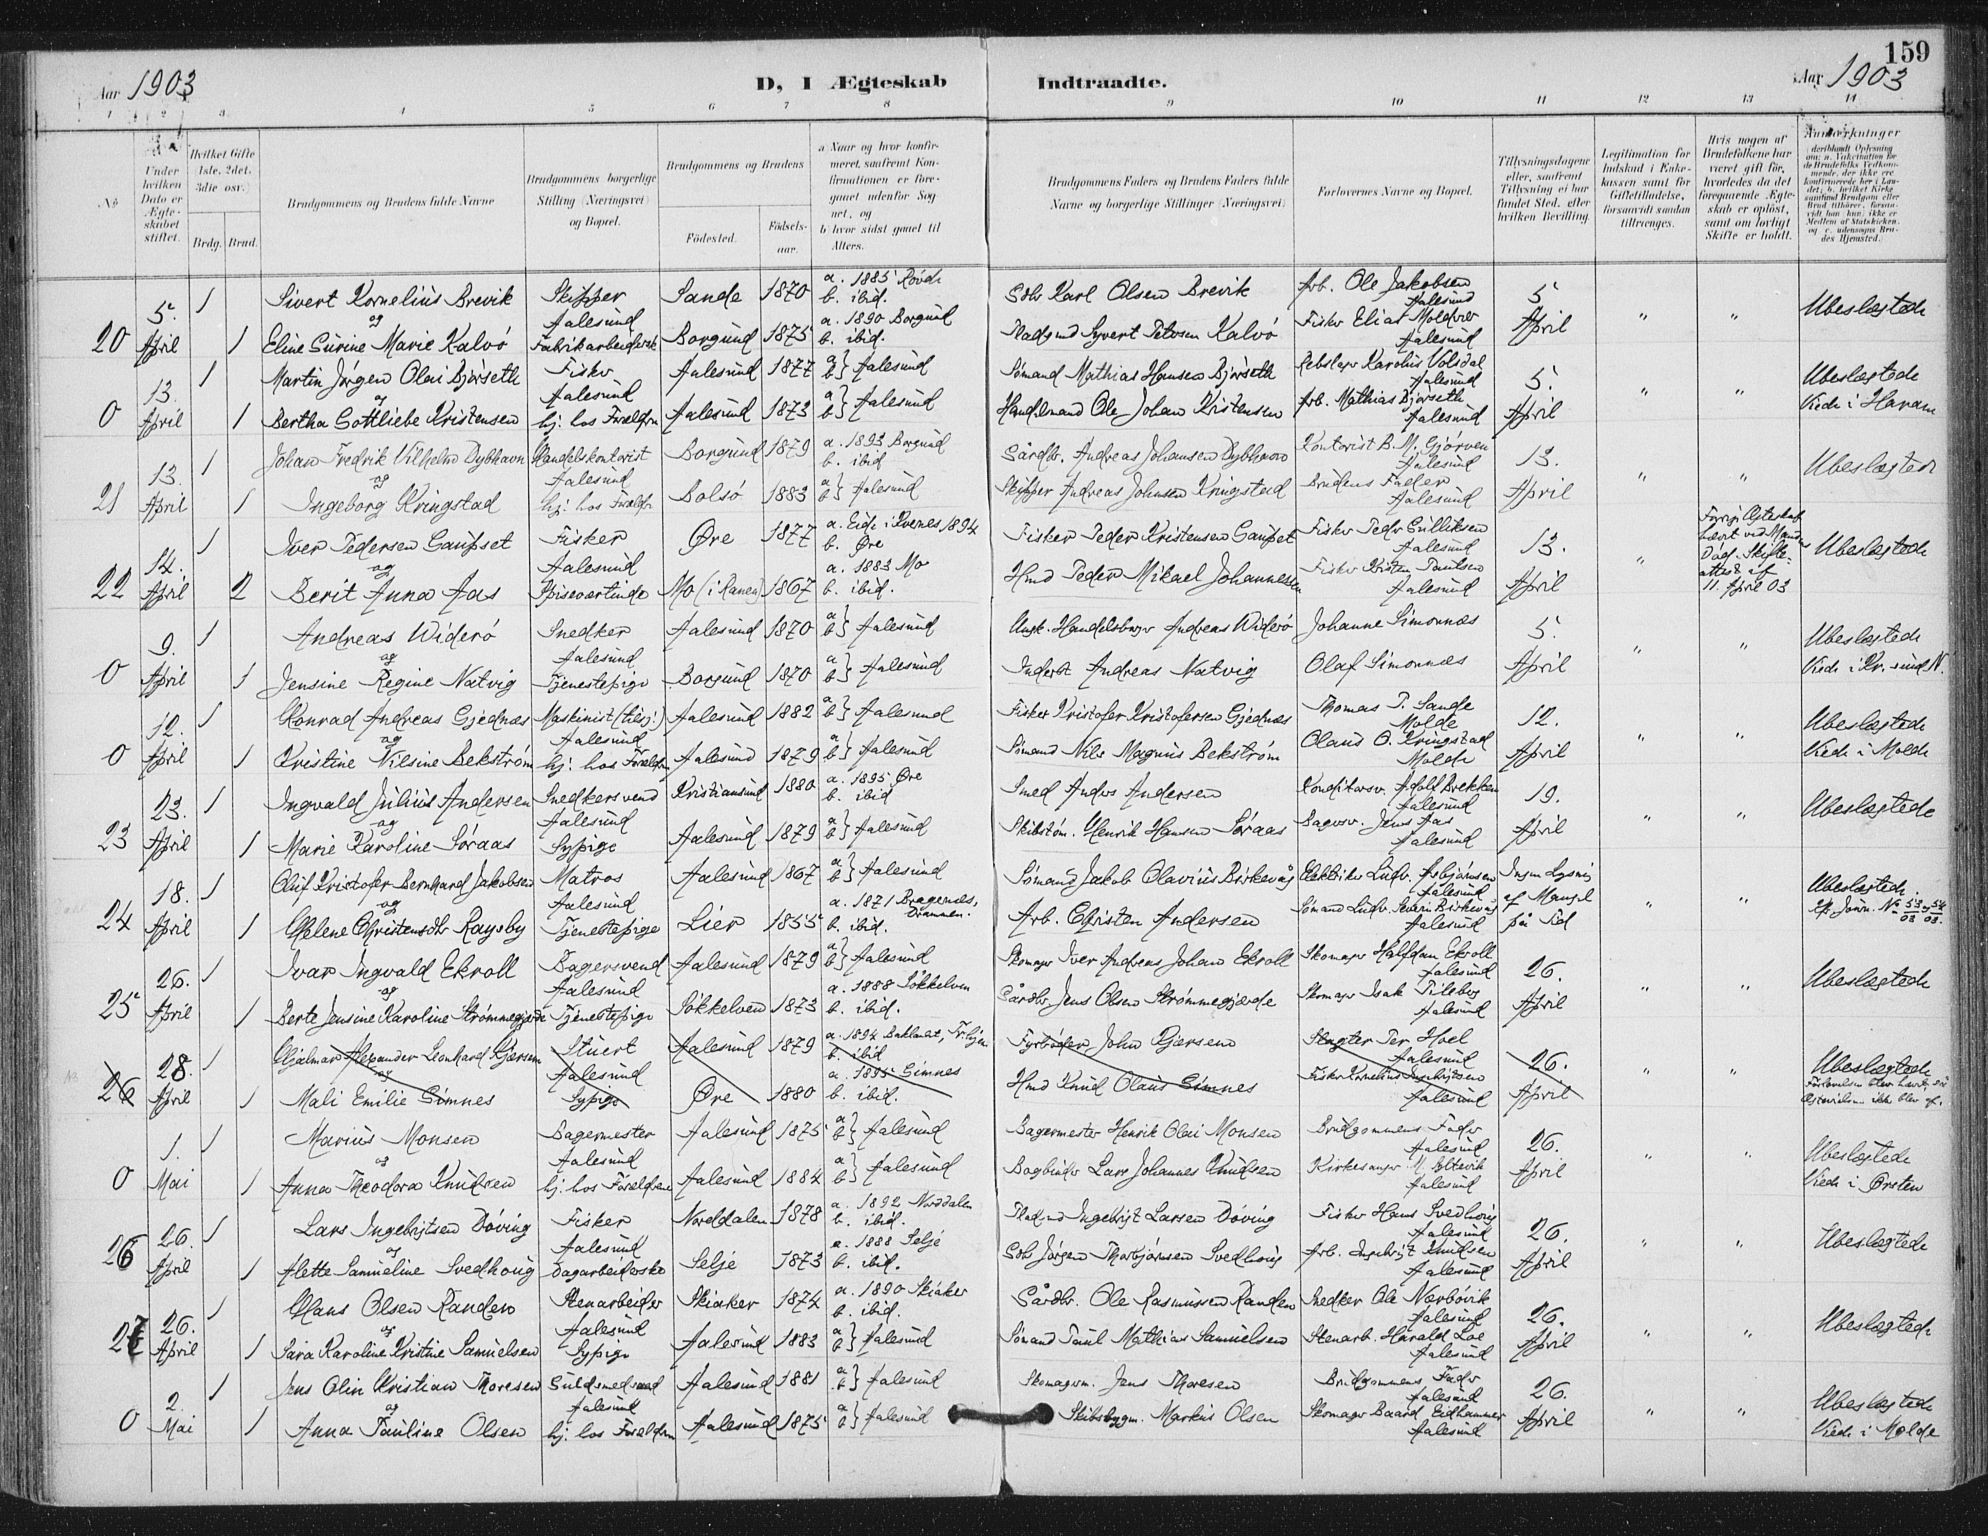 159
Aar 1903
D, I Ægteskab Indtraadte.
Aar 1903
1 2 3 4 5 6 7 8 9 10 11 12 13 14
№
Under hvilken Dato er Ægteskabet stiftet.
Hvilket Gifte 1ste, 2det, 3die osv.
Brdg. Brud.
Brudgommens og Brudens fulde Navne
Brudgommens borgerlige Stilling (Næringsvei) og Bopæl.
Brudgommens og Brudens
Fødested. Fødselsaar.
a Naar og hvor konfirmeret, saafremt Konfirmationen er foregaaet udenfor Sognet, og
b hvor sidst gaaet til Alters.
Brudgommens Faders og Brudens Faders fulde Navne og borgerlige Stillinger (Næringsvei)
Forlovernes Navne og Bopæl.
Tillysningsdagene eller, saafremt Tillysning ei har fundet Sted, efter hvilken Bevilling.
Legitimation for Indskud i Enkekassen samt for Giftetilladelse, forsaavidt saadan tiltrænges.
Hvis nogen af Brudefolkene har været gift før, hvorledes da det foregaaende Ægteskab er opløst, samt om lovligt Skifte er holdt.
Anmærkninger
20 5. April 1 Sivert Kornelius Brevik Skipper Aalesund Sande 1870 a. 1885 Rovde b. ibid. Sdbr Karl Olsen Brevik Arb. Ole Jakobsen Aalesund 5. April " " Ubeslægtede
og
1 Eline Surine Marie Kalvö Fabrikarbeiderske Borgund 1875 a. 1890 Borgund b. ibid. Pladsmd Syvert Petersen Kalvö Fisker Elias Moldver Aalesund
0 13. April 1 Martin Jørgen Olai Bjørseth Fisker Aalesund Aalesund 1877 a b } Aalesund Sömand Mathias Hansen Bjørseth Rebslager Karolus Volsdal Aalesund 5. April " " Ubeslægtede
og
1 Bertha Gottliebe Kristensen hj. hos Forældrene Aalesund 1873 a b } Aalesund Handelsmand Ole Johan Kristensen Arb. Mathias Bjørseth Aalesund Viede i Haram
21 13. April 1 Johan Fredrik Vilhelm Dybhavn Handelskontorist Aalesund Borgund 1879 a. 1893 Borgund b. ibid Gårdbr. Andreas Johansen Dybhavn Kontorist B. M. Gjørven Aalesund 13. April " " Ubeslægtede
og
1 Ingeborg Kringstad hj. hos Forældr. Bolsö 1883 a b } Aalesund Skipper Andreas Johnsen Kringstad Brudens Fader Aalesund
22 14. April 1 Iver Pedersen Gaupset Fisker Aalesund Øre 1877 a. Eide i Kvernes 1894 b. Øre Fisker Peder Kristensen Gaupset Fisker Peder Aalesund 13. April " Forrige Ægteskab hævet ved Mandens Död. Skifteattest af 11. April 03 Ubeslægtede
og
2 Berit Anna Aas Spisevertinde Mo (i Ranen) 1867 a. 1883 Mo b. ibid. Hmd Peder Mikael Johannesen Fisker Kristen Paulsen Aalesund
0 9. April 1 Andreas Widerö Snedker Aalesund Aalesund 1870 a b } Aalesund Ungk. Handelsborger Andreas Widerö Johanne Simonnæs 5. April " " Ubeslægtede
og
1 Jensine Regine Natvig Tjenestepige Borgund 1870 a b } Aalesund Inderst Andreas Natvig Olaf Simonnæs Viede i Kr.sund N.
0 12. April 1 Konrad Andreas Gjednæs Maskinist (tilsj.) Aalesund Aalesund 1882 a b } Aalesund Fisker Kristofer Kristofersen Gjednæs Thomas P. Sande Molde 12. April " " Ubeslægtede
og
1 Kristine Nilsine Bekström hj. hos Forældrene Aalesund 1879 a b } Aalesund Sömand Nils Magnus Bekström Olaus O. Kringstad Molde Viede i Molde
23 23. April 1 Ingvald Julius Andersen Snedkersvend Aalesund Kristiansund 1880 a. 1895 Øre b. ibid Smed Anders Andersen Konditorsv. Adolf Brekken Aalesund 19. April " " Ubeslægtede
og
1 Marie Karoline Söraas Sypige Aalesund 1879 a b } Aalesund Skibstöm. Henrik Hansen Söraas Bagersv. Jens Aas Aalesund
24 18. April 1 Oluf Kristofer Bernhard Jakobsen Matros Aalesund Aalesund 1867 a b } Aalesund Sömand Jakob Olavius Birkevåg Elektriker Ludv. Asbjörnsen Aalesund Ingen Lysning af Mangel på Tid " " Ubeslægtede.
og
1 Helene Christensdtr Raysby Tjenestepige Lier 1855 a. 1871 Bragernæs, Drammen. b. ibid. Arb. Christen Andersen Sömand Ludv. Severin Birkevåg Aalesund cfr. Journ. № 53/03 54/03.
25 26. April 1 Ivar Ingvald Ekroll Bagersvend Aalesund Aalesund 1879 a b } Aalesund Skomager Iver Andreas Johan Ekroll Skomager Halfdan Ekroll Aalesund 26. April " " Ubeslægtede
og
1 Berte Jensine Karoline Strømmegjerde Tjenestepige Søkkelven 1873 a. 1888 Søkkelven b. ibid. Gårdbr. Jens Olsen Strømmegjærde Skomager Isak Tileberg Aalesund
26 28. April 1 Hjalmar Alexander Leonhard Gjersem Stuert Aalesund Aalesund 1879 a. 1894 b. ibid Fyrböder John Gjersem Slagter Per Hoel Aalesund 26. April " " Ubeslægtede
og
1 Mali Emilie Gimnes Sypige Øre 1880 a. 1895 Gimnes b. ibid. Hmd Knud Olaus Gimnes Fisker Kornelius Ingebrigtsen Aalesund Forlovelsen blev hævet, så Ægtevielsen ikke blev af.
0 1. Mai 1 Marius Monsen Bagermester Aalesund Aalesund 1875 a b } Aalesund Bagermester Henrik Olai Monsen Brudgommens Fader Aalesund 26. April " " Ubeslægtede
og
1 Anna Theodora Knudsen hj. hos Forældrene Aalesund 1884 a b } Aalesund Bogbinder Lars Johannes Knudsen Kirkesanger M. Eltevik Aalesund Viede i Ørsten
26 26. April 1 Lars Ingebrigtsen Döving Fisker Aalesund Norddalen 1878 a. 1892 Norddalen b. ibid. Pladsmd Ingebrigt Larsen Döving Fisker Hans Svedhoug Aalesund 26. April " " Ubeslægtede
og
1 Alette Samueline Svedhoug Dagarbeiderske Selje 1873 a. 1888 Selje b. ibid. Sdbr Jørgen Thorbjørnsen Svedhoug Arb. Ingebrigt Knudsen Aalesund
27 26. April 1 Hans Olsen Randen Stenarbeider Aalesund Skiaker 1874 a. 1890 Skiaker b. ibid. Gårdbr. Ole Rasmussen Randen Snedker Ole Nærbövik Aalesund 26. April " " Ubeslægtede
og
1 Sara Karoline Kristine Samuelsen Sypige Aalesund 1883 a b } Aalesund Sömand Paul Mathias Samuelsen Stenarb. Harald Loe Aalesund
0 2. Mai 1 Jens Olin Kristian Thoresen Guldsmedsvend Aalesund Aalesund 1881 a b } Aalesund Skomagerm. Jens Thoresen Brudgommens Fader Aalesund 26. April " " Ubeslægtede
og
1 Anna Pauline Olsen hj. hos Forældrene Aalesund 1875 a b } Aalesund Skibsbygm. Markus Olsen Skomager Baard Eidhammer Aalesund Viede i Molde